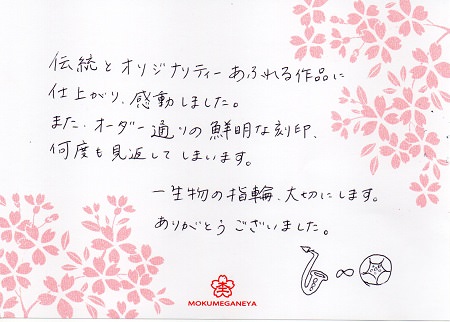 伝統とオリジナリティーあふれる作品に
仕上がり、感動しました。
また、オーダー通りの鮮明な刻印、
何度も見返してしまいます。
一生物の指輪、大切にします。
ありがとうございました。
MOKUMEGANEYA